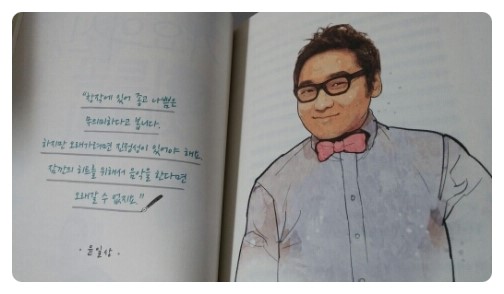 "창작에 있어 좋고 나쁨은
무의미하다고 봅니다.
하지만 오래가려면 진정성이 있어야 해요.
잠깐의 히트를 위해서 음악을 한다면
오래갈 수 없지요."
· 윤일상 ·